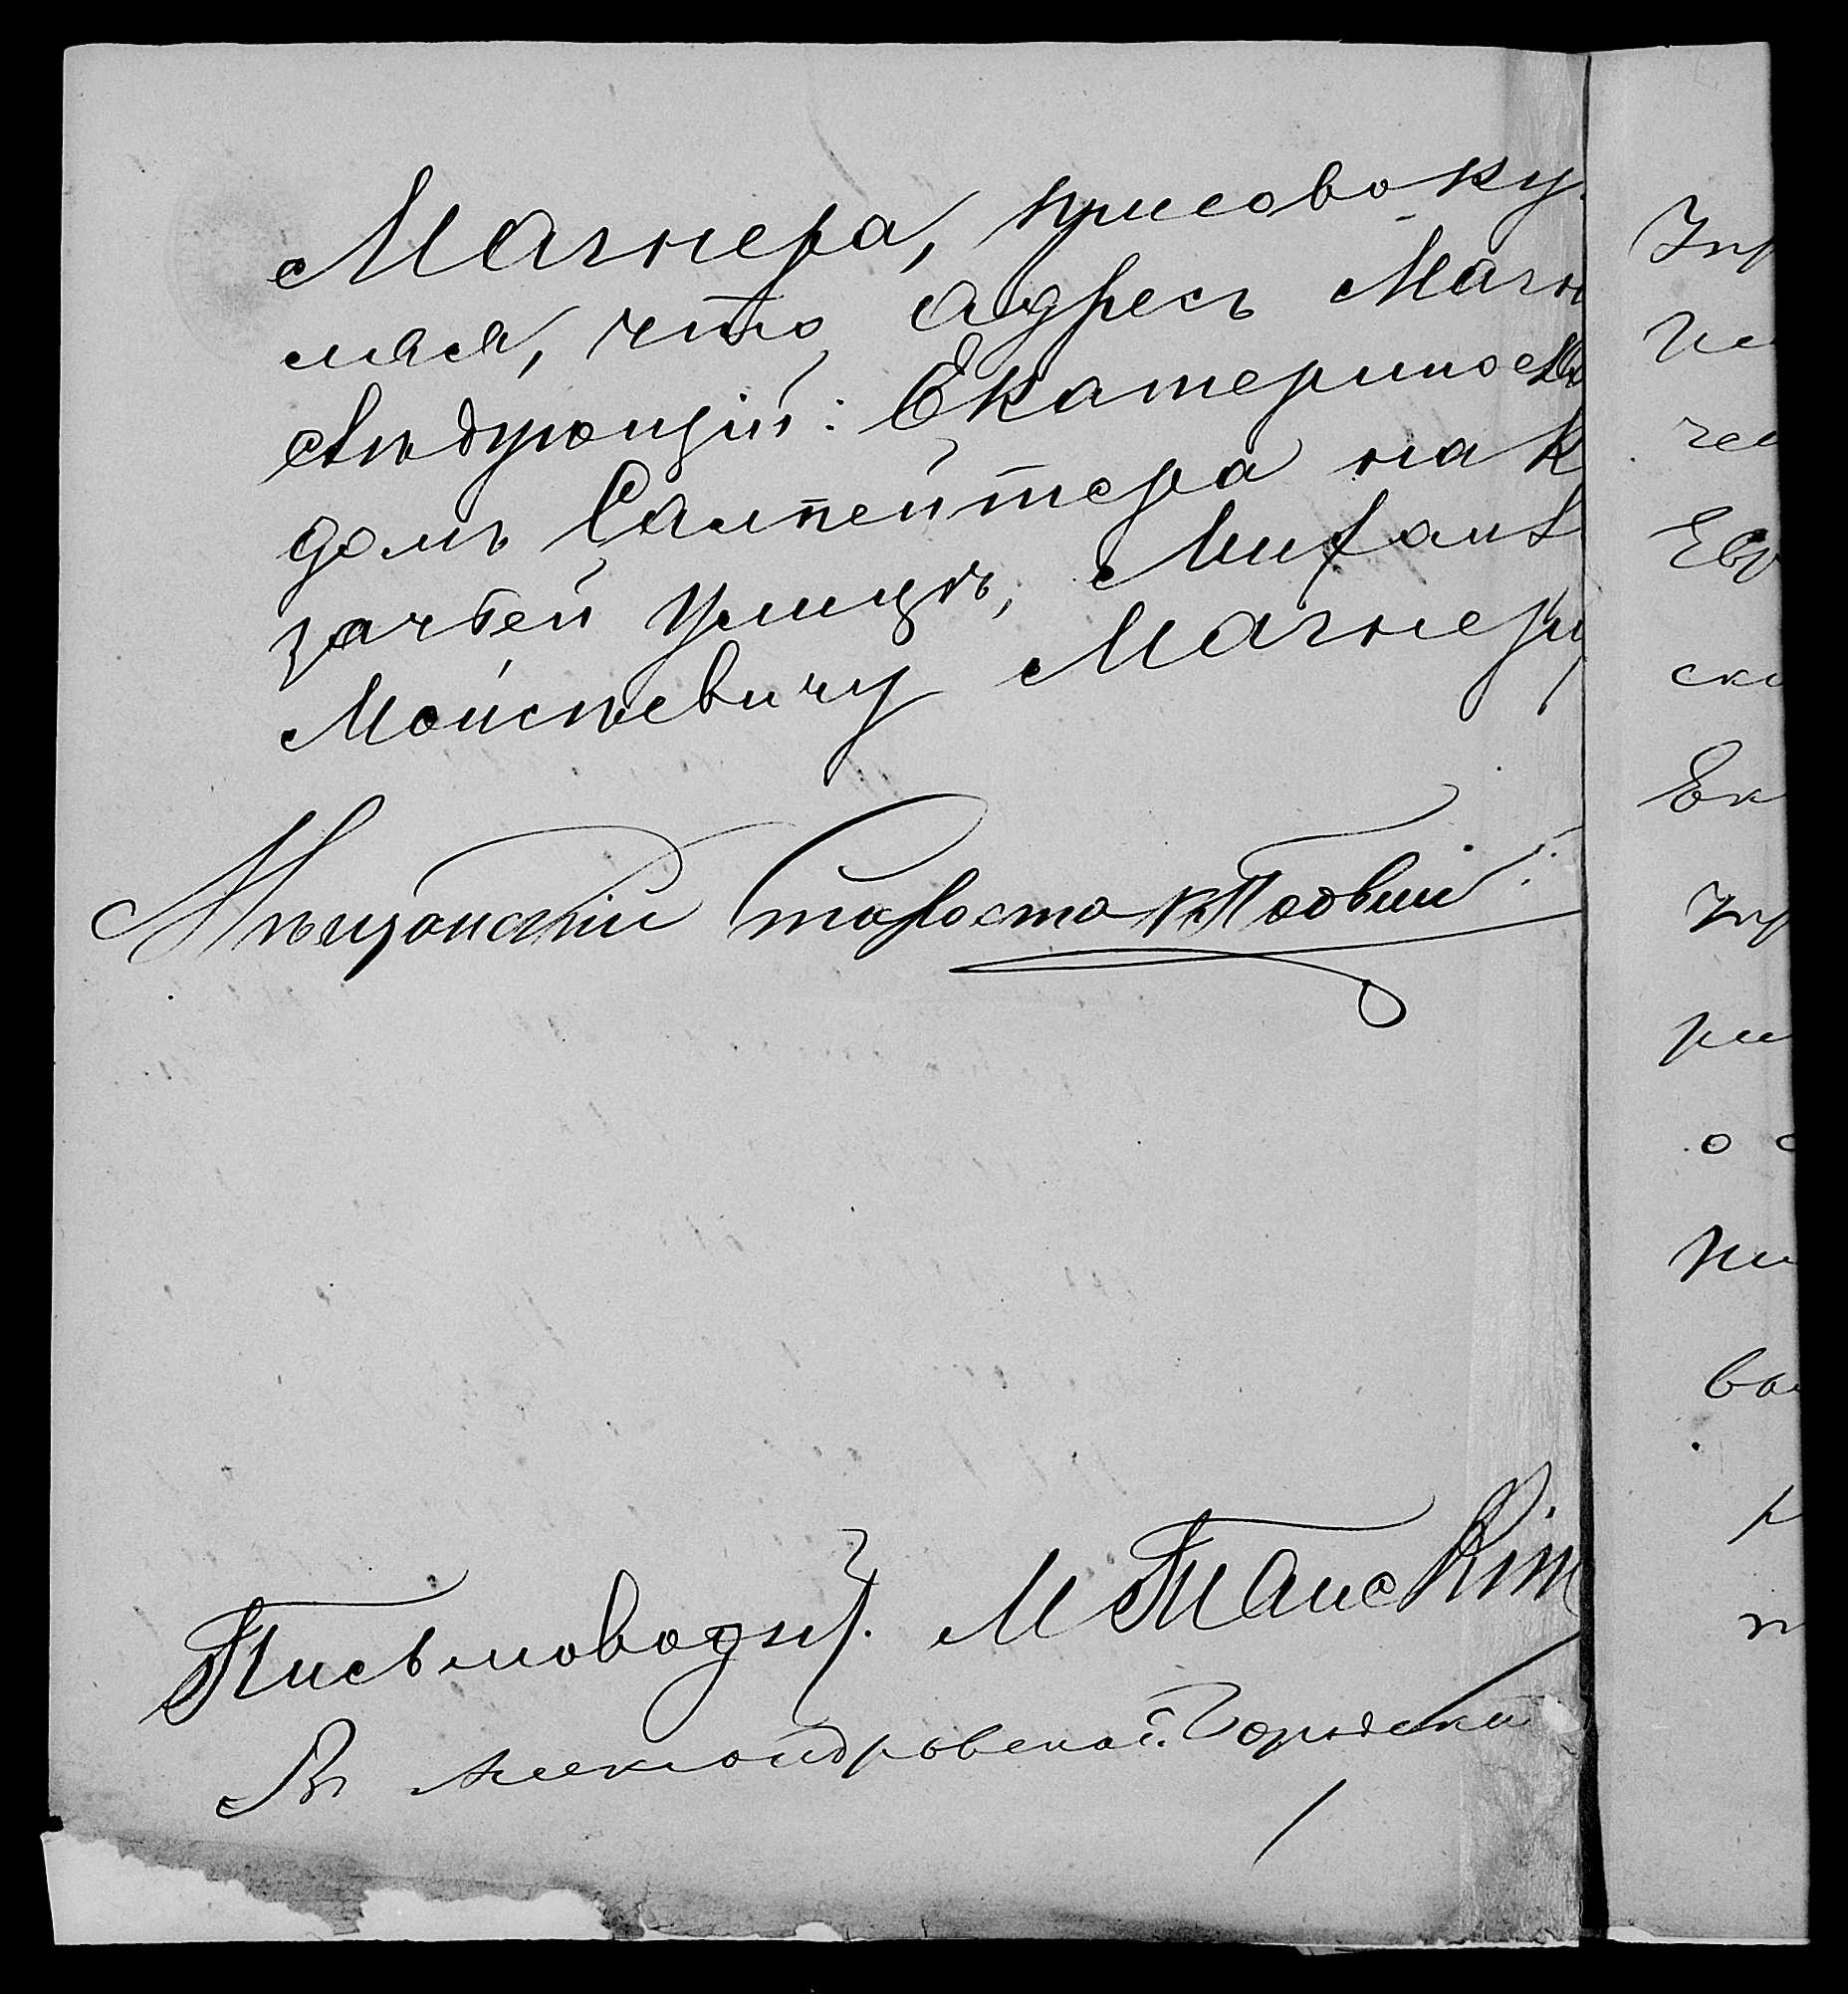 Магнера, присовоку-
пляя, что адресъ Магн
слѣдующій: Екатериносл
домъ Сампейтера на К
зачьей улицѣ, Михаилу
Моисѣевичу Магнеру
Мѣщанскій Староста
Письмоводит. М
Въ Александровской Городской
Упр
ск
Ек
Упр
ри
о с